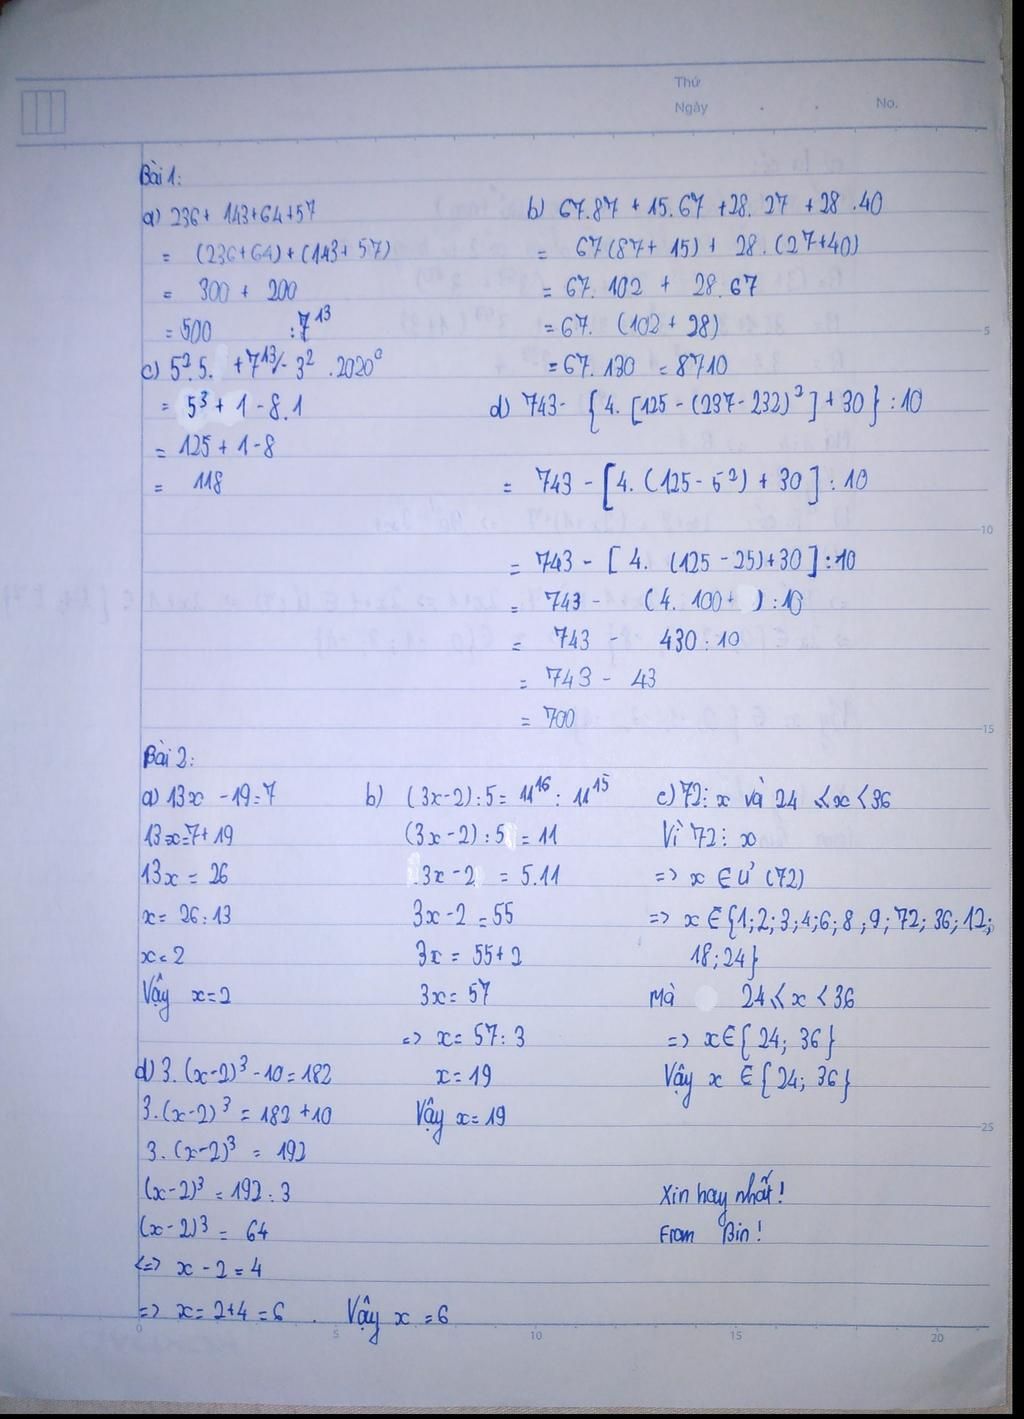 Thứ
Ngày . . No.
Bài 1:
a) 236 + 143 + 64 + 57
= (236+64) + (143+57)
= 300 + 200
= 500
b) 67.87 + 15.67 + 28.27 + 28.40
= 67(87+15) + 28.(27+40)
= 67.102 + 28.67
= 67. (102 + 28)
= 67.130 = 8710
:7¹³
c) 5².5. + 7¹³ - 3² .2020⁰
= 5³ + 1 - 8.1
= 125 + 1 - 8
= 118
d) 743 - {4. [125 - (237 - 232)²] + 30} : 10
= 743 - [4. (125 - 5²) + 30] : 10
= 743 - [4. (125 - 25) + 30] : 10
= 743 - (4. 100 + ) : 10
= 743 - 430 : 10
= 743 - 43
= 700
Bài 2:
a) 13x - 19 = 7
13x = 7 + 19
13x = 26
x = 26 : 13
x = 2
Vậy x = 2
b) (3x - 2) : 5 = 11¹⁶ : 11¹⁵
(3x - 2) : 5 = 11
3x - 2 = 5.11
3x - 2 = 55
3x = 55 + 2
3x = 57
=> x = 57 : 3
x = 19
Vậy x = 19
c) 72 ⋮ x và 24 ≤ x < 36
Vì 72 ⋮ x
=> x ∈ Ư (72)
=> x ∈ {1; 2; 3; 4; 6; 8; 9; 72; 36; 12;
18; 24}
Mà 24 ≤ x < 36
=> x ∈ {24; 36}
Vậy x ∈ {24; 36}
d) 3. (x - 2)³ - 10 = 182
3. (x - 2)³ = 182 + 10
3. (x - 2)³ = 192
(x - 2)³ = 192 : 3
(x - 2)³ = 64
<=> x - 2 = 4
=> x = 2 + 4 = 6 . Vậy x = 6
Xin hay nhất!
From Bin!
5
10
15
25
0 5 10 15 20